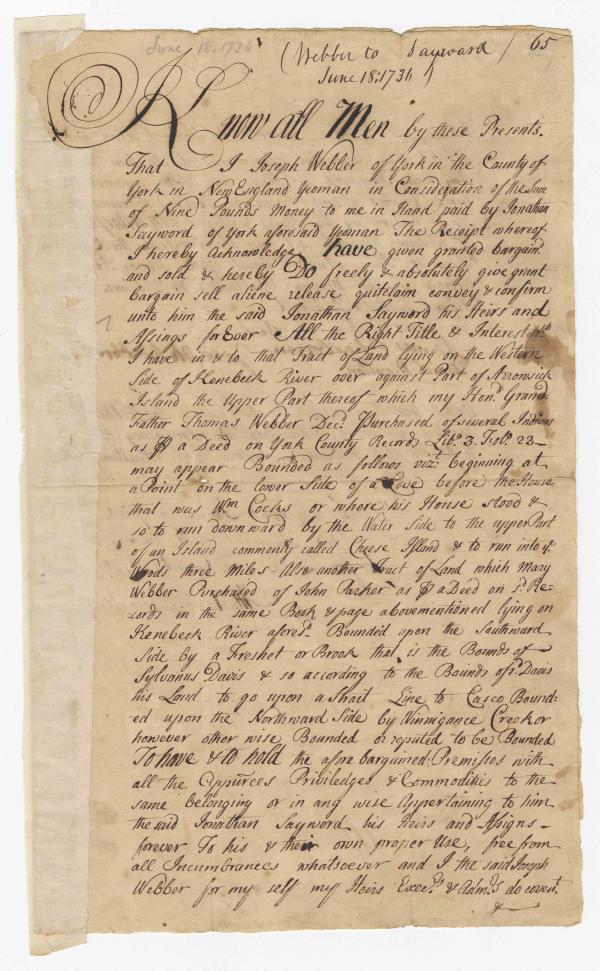 June 18. 1736
(Webber to Sayward / 65
June 18: 1736)
Know all Men by these Presents.
That I Joseph Webber of York in the County of
York in New England Yeoman in Consideration of the Sum
of Nine Pounds Money to me in Hand paid by Jonathan
Sayward of York aforesaid Yeoman The Receipt whereof
I hereby Acknowledge have given granted bargain.d
and sold & hereby Do freely & absolutely give grant
bargain sell aliene release quitclaim convey & confirm
unto him the said Jonathan Sayward his Heirs and
Assings for Ever All the Right Title & Interest wch
I have in & to that Tract of Land lying on the Western
Side of Kenebeck River over against Part of Arrowsick
Island the Upper Part thereof which my Hon.d Grand-
Father Thomas Webber Dec.d Purchased of several Indians
as p a Deed on York County Records Lib.o 3. Fol.o 23
may appear Bounded as follows viz.t beginning at
a Point on the lower Side of a Cove before the House
that was Wm Cocks or where his House stood &
so to run downward by the Water Side to the upper Part
of an Island commonly called Cheese Island & to run into y.e
Woods three Miles - Also another Tract of Land which Mary
Webber Purchased of John Parker as p a Deed on s.d Re-
cords in the same Book & page abovementioned lying on
Kenebeck River afores.d Bounded upon the Southward
Side by a Freshet or Brook that is the Bounds of
Sylvanus Davis & so according to the Bounds of s.d Davis
his Land to go upon a Strait Line to Casco Bound:
ed upon the Northward Side by Winnigance Creek or
however other wise Bounded or reputed to be Bounded
To have & to hold the afore bargained Premisses with
all the Appurces Priviledges & Commodities to the
same belonging or in any wise Appertaining to him
the said Jonathan Sayword his Heirs and Assigns -
forever To his & their own proper Use, free from
all Incumbrances whatsoever and I the said Joseph
Webber for my self my Heirs Exec.rs & Adm.rs do covent.
&